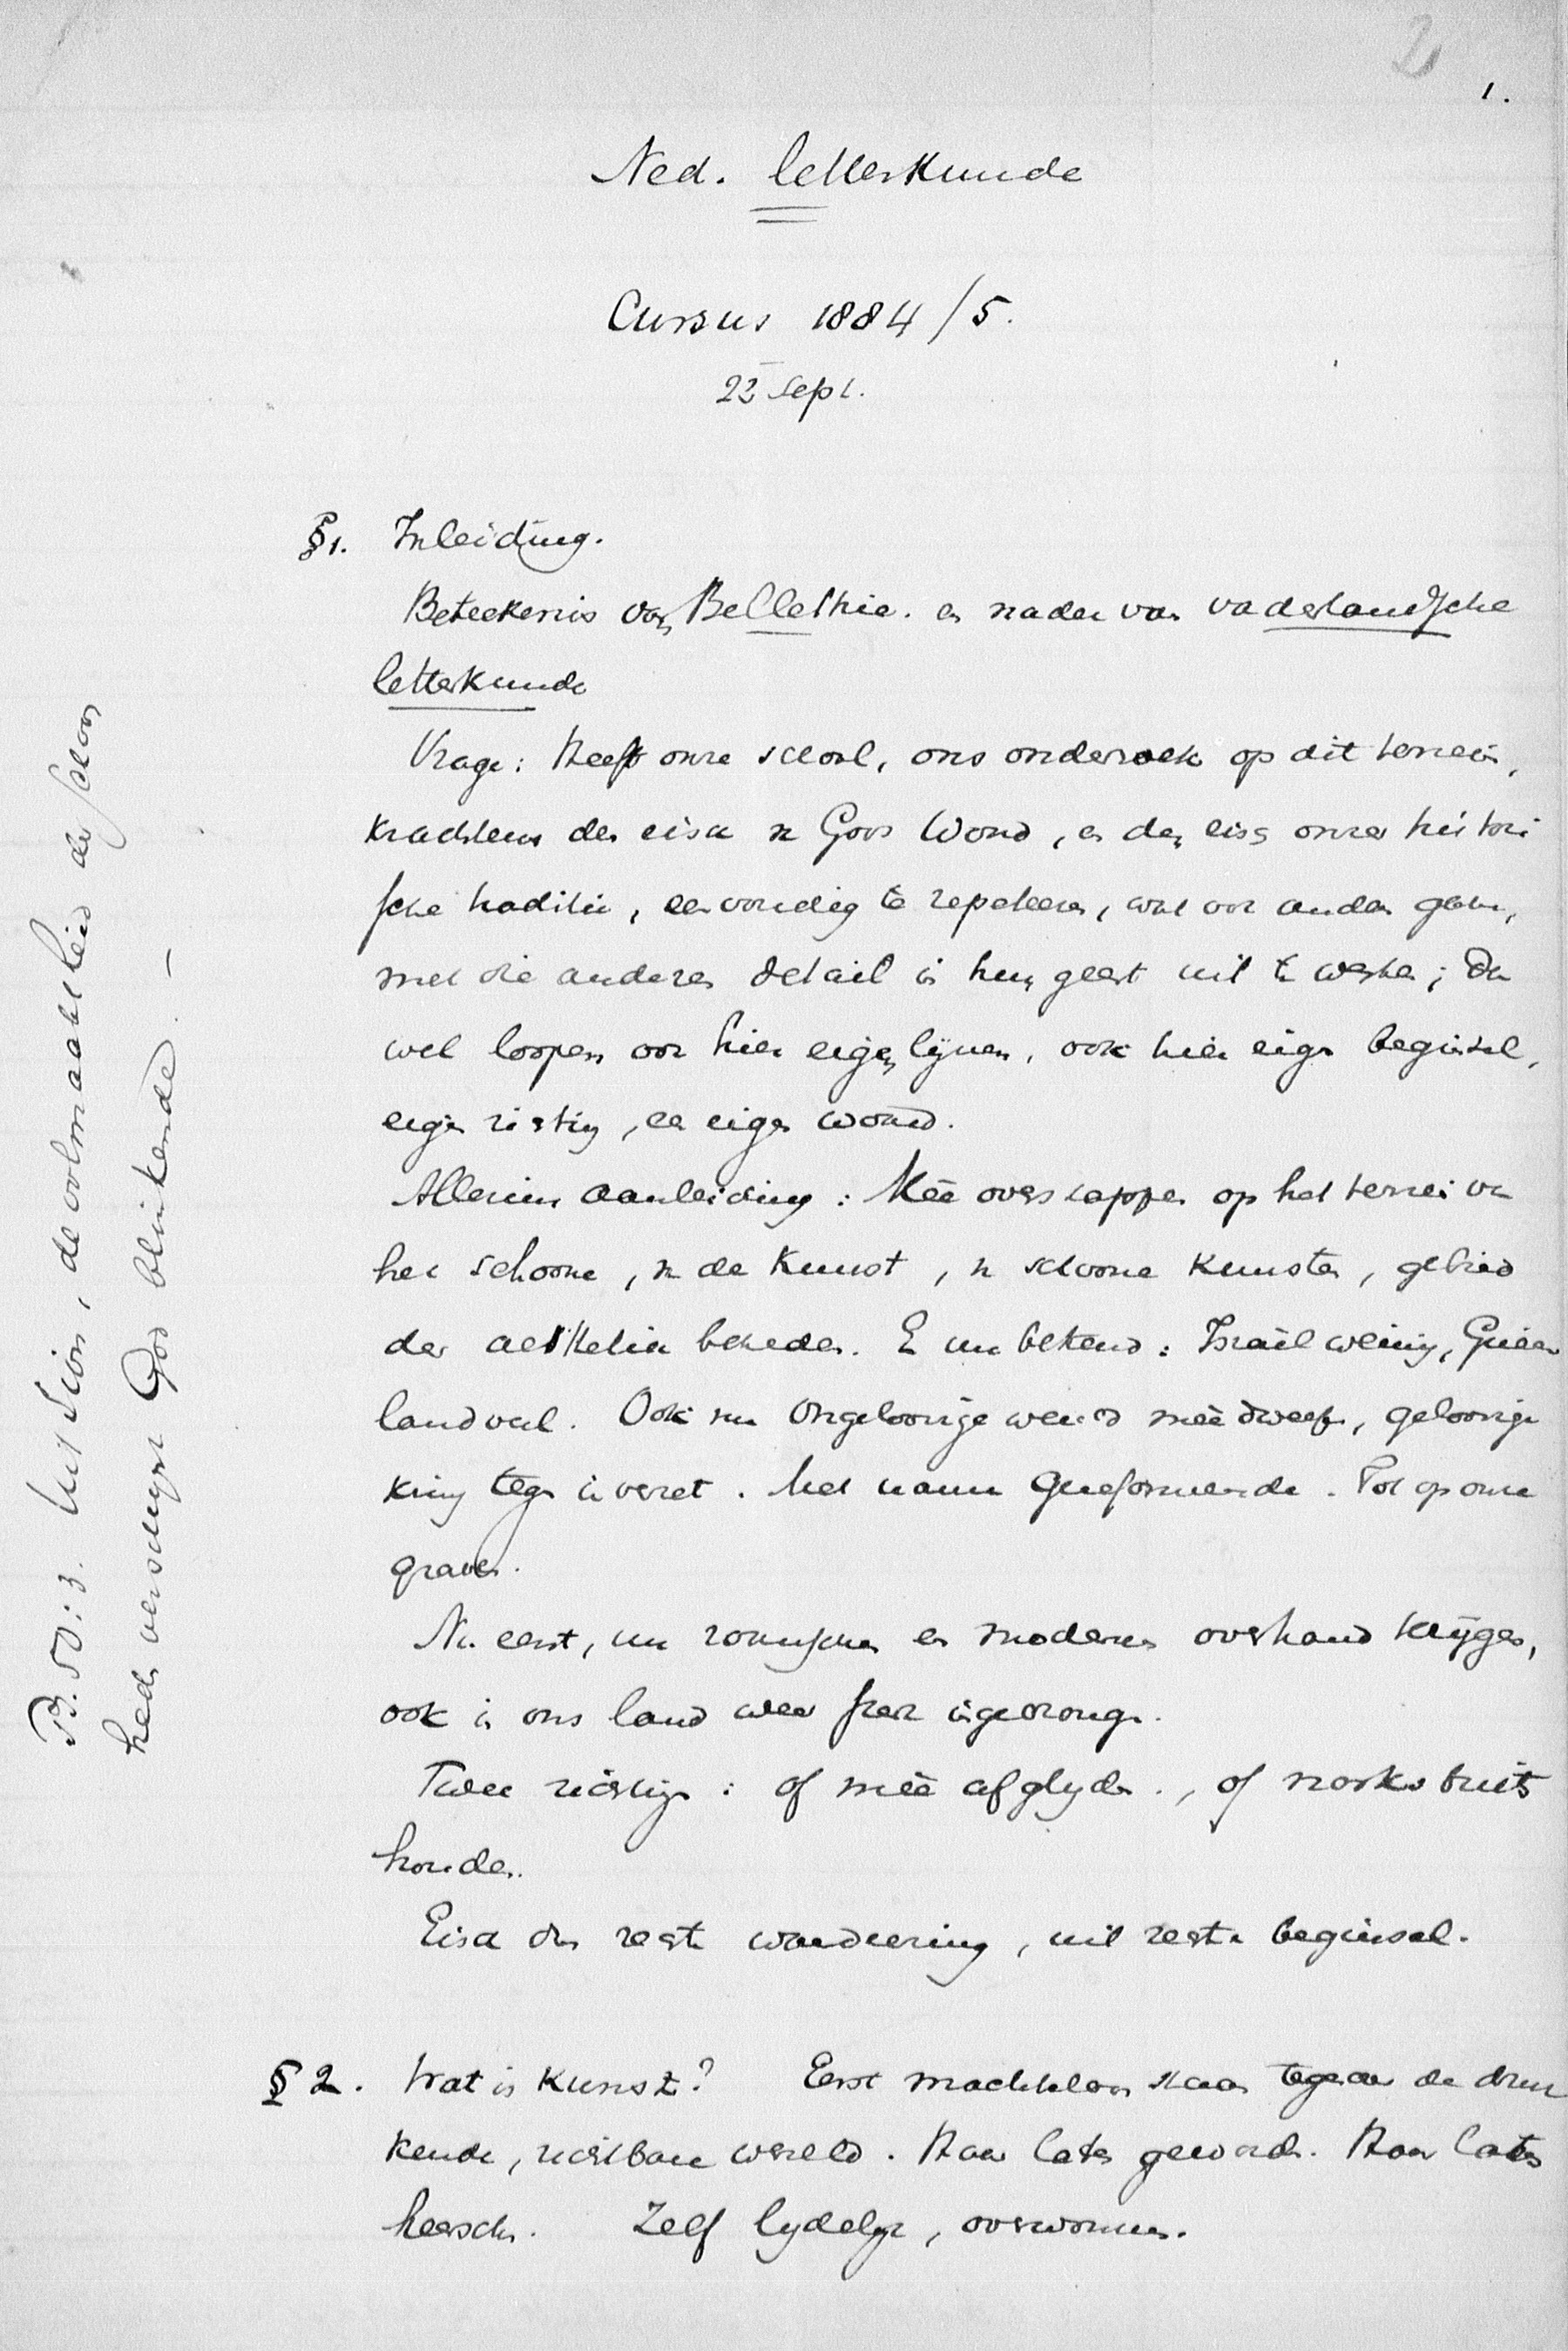 2
1.
Ned. letterkunde
Cursus 1884/5.
22 Sept.
§1. Inleiding.
Beteekenis van Bellettrie. en nader van vaderlandsche
letterkunde
Vrage: Heeft onze school, ons onderzoek op dit terrein,
krachtens den eisch v. Gods Woord, en den eisch onzer histori
sche traditie, eenvoudig te repeteeren, wat voor anderen gaven,
met die anderen detail in hun geest uit te werken; dan
wel loopen ook hier eigen lijnen, ook hier eigen beginsel,
eigen richting, en eigen woord.
Alleen aanleiding: Meê overstappen op het terrein van
het schoone, v. de Kunst, v. schoone Kunsten, gebied
der aesthetiek betreden. En nu bekend: Israël weinig, Grieken
land veel. Ook nu ongeloovige wereld meê dweept, geloovige
kring tegen in verzet. Met name Gereformeerde. Tot op onze
graven.
Nu eerst, nu roomschen en modernen overhand krijgen,
ook in ons land weer sterk ingedrongen.
Twee richtingen: of meê afglijden., of norks buiten
houden.
Eisch dus rechte waardeering, uit rechte beginsel.
§ 2. Wat is Kunst? Eerst machteloos staan tegenover de druk
kende, zichtbare wereld. Haar laten geworden. Haar laten
heerschen. Zelf lijdelijk, overwonnen.
Ps. 50:3. Uit Sion, de volmaaktheid der schoon
heid verschijnt God blinkende. —